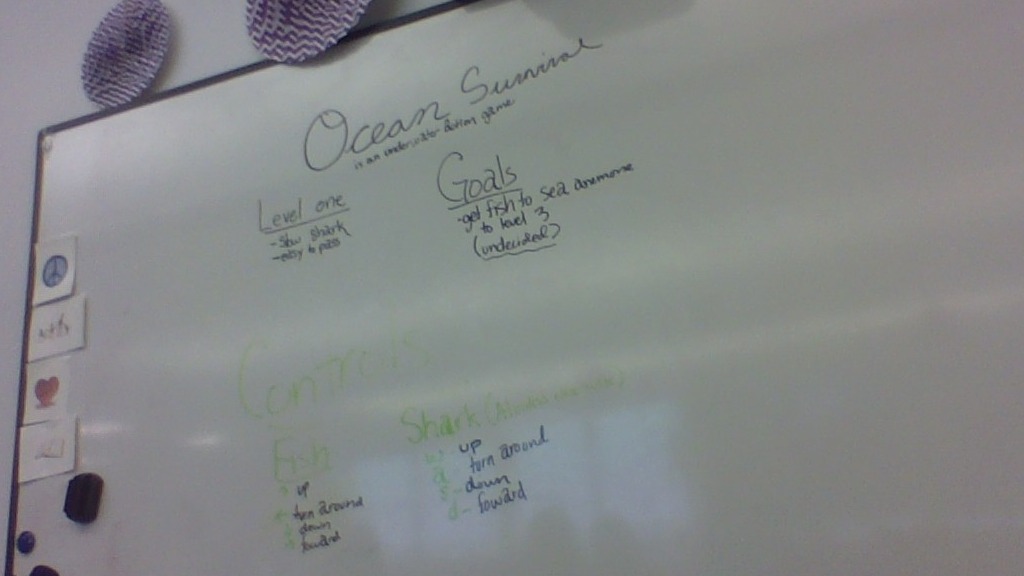 Ocean Survival
is an underwater action game
Level one
-Slow shark
-easy to pass
Goals
-get fish to sea anemone
to level 3
(undecided)
Controls
Fish
up
turn around
down
foward
Shark
w- up
a- turn around
s- down
d- foward